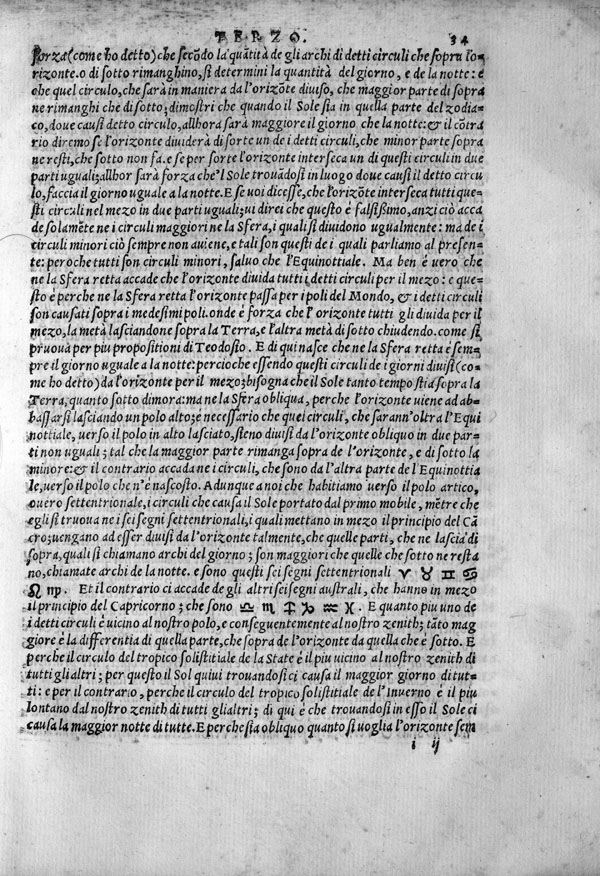 TERZO. 34
forza(come ho detto)che secõdo la quãtità de gli archi di detti circuli che sopra l'o-
rizonte.o di sotto rimanghino,si determini la quantità del giorno, e de la notte: e
che quel circulo,che sarà in maniera da l'orizõte diuiso, che maggior parte di sopra
ne rimanghi che di sotto; dimostri che quando il Sole sia in quella parte del zodia-
co,doue causi detto circulo,allhora sarà maggiore il giorno che la notte:& il cõtra
rio diremo se l'orizonte diuiderà di sorte un de i detti circuli,che minor parte sopra
ne resti,che sotto non fa.e se per sorte l'orizonte interseca un di questi circuli in due
parti uguali;allhor sarà forza che'l Sole trouãdosi in luogo doue causi il detto circu
lo,faccia il giorno uguale a la notte.E se uoi dicesse,che l'orizõte interseca tutti que-
sti circuli nel mezo in due parti uguali;ui direi che questo è falsißimo,anzi ciò acca
de solamẽte ne i circuli maggiori ne la Sfera,i quali si diuidono ugualmente: ma de i
circuli minori ciò sempre non auiene,e tali son questi de i quali parliamo al presen-
te: peroche tutti son circuli minori, saluo che l'Equinottiale. Ma ben è uero che
ne la Sfera retta accade che l'orizonte diuida tutti i detti circuli per il mezo: e que-
sto è perche ne la Sfera retta l'orizonte passa per i poli del Mondo, & i detti circuli
son causati sopra i medesimi poli.onde è forza che l'orizonte tutti gli diuida per il
mezo,la metà lasciandone sopra la Terra,e l'altra metà di sotto chiudendo.come si
pruoua per piu propositioni di Teodosio. E di qui nasce che ne la Sfera retta è sem-
pre il giorno uguale a la notte:percioche essendo questi circuli de i giorni diuisi(co-
me ho detto)da l'orizonte per il mezo;bisogna che il Sole tanto tempo stia sopra la
Terra,quanto sotto dimora:ma ne la Sfera obliqua, perche l'orizonte uiene ad ab-
bassarsi lasciando un polo alto;è necessario che quei circuli, che sarann'oltra l'Equi
nottiale, uerso il polo in alto lasciato,sieno diuisi da l'orizonte obliquo in due par-
ti non uguali; tal che la maggior parte rimanga sopra de l'orizonte, e di sotto la
minore:& il contrario accada ne i circuli, che sono da l'altra parte de l'Equinottia
le,uerso il polo che n'è nascosto. Adunque a noi che habitiamo uerso il polo artico,
ouero settentrionale,i circuli che causa il Sole portato dal primo mobile, mẽtre che
egli si truoua ne i sei segni settentrionali,i quali mettano in mezo il principio del Cã
cro;uengano ad esser diuisi da l'orizonte talmente,che quelle parti, che ne lascia di
sopra,quali si chiamano archi del giorno; son maggiori che quelle che sotto ne resta
no,chiamate archi de la notte. e sono questi sei segni settentrionali ♈ ♉ ♊ ♋
♌ ♍. Et il contrario ci accade de gli altri sei segni australi, che hanno in mezo
il principio del Capricorno; che sono ♎ ♏ ♐ ♑ ♒ ♓. E quanto piu uno de
i detti circuli è uicino al nostro polo,e conseguentemente al nostro zenith; tãto mag
giore è la differentia di quella parte,che sopra de l'orizonte da quella che è sotto. E
perche il circulo del tropico solistitiale de la State è il piu uicino al nostro zenith di
tutti gli altri; per questo il Sol quiui trouandosi ci causa il maggior giorno di tut-
ti: e per il contrario, perche il circulo del tropico solistitiale de l'Inuerno è il piu
lontano dal nostro zenith di tutti gli altri; di qui è che trouandosi in esso il Sole ci
causa la maggior notte di tutte.E perche sia obliquo quanto si uoglia l'orizonte sem
i ij